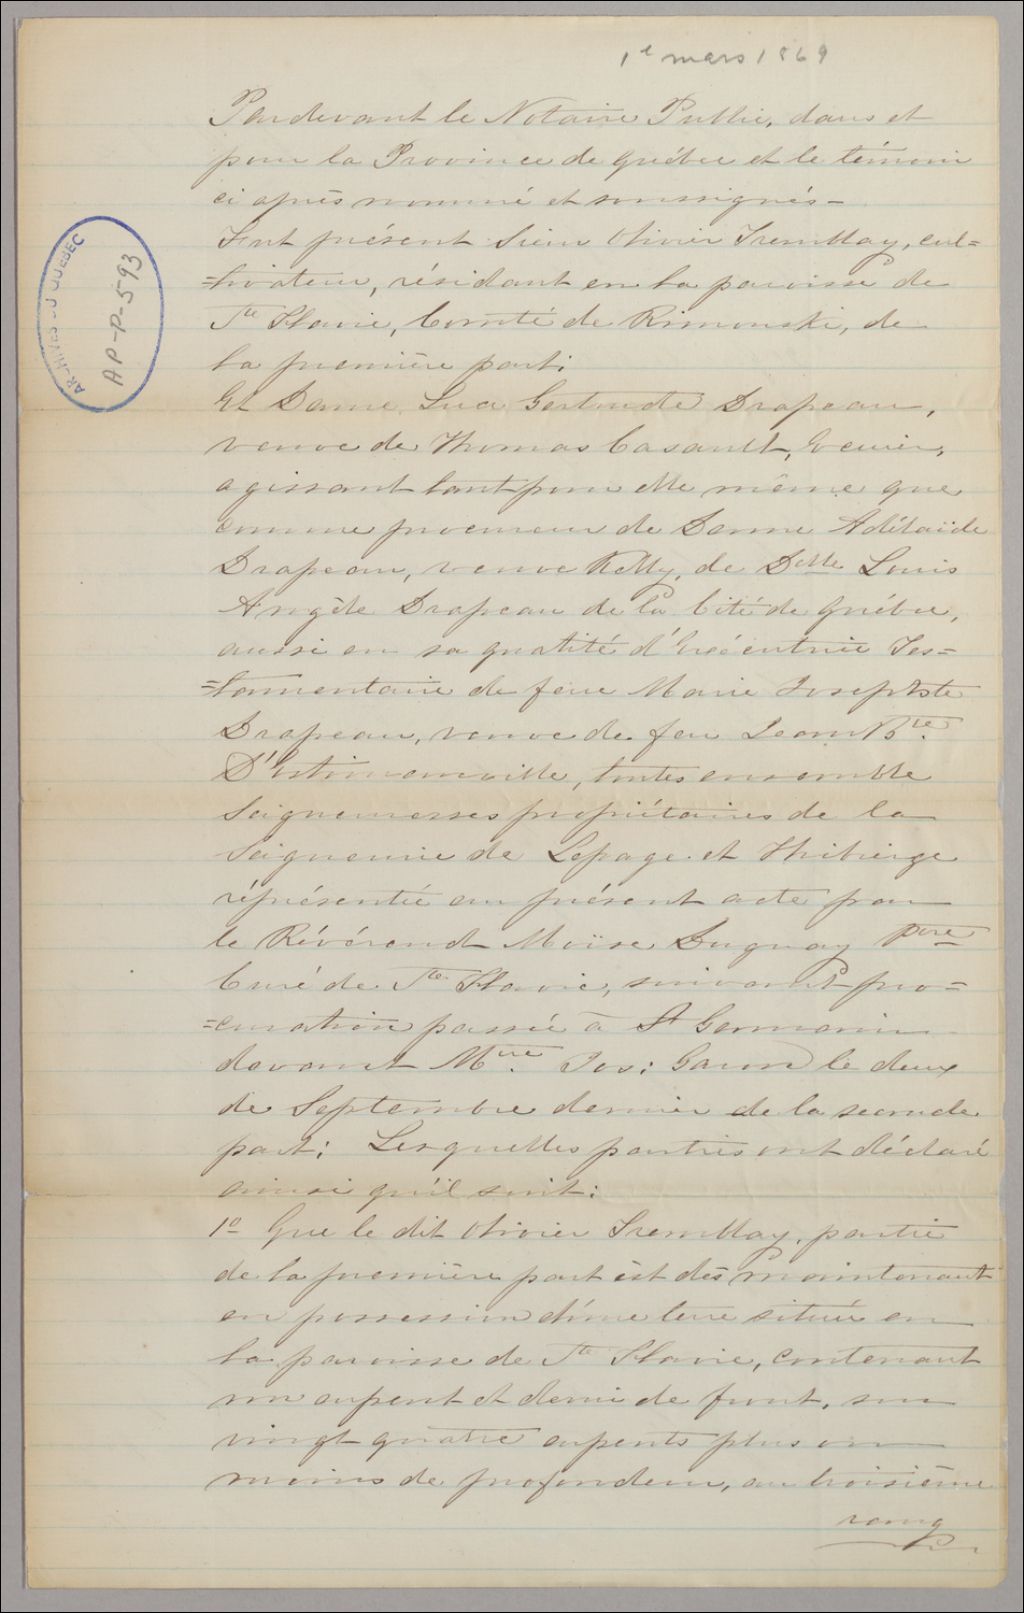 1e mars 1869
Pardevant le Notaire Public, dans et
pour la Province de Québec et le témoin
ci après nommé et soussignés-
Fut présent Sieur Olivier Tremblay, cul=
=tivateur, résidant en la paroisse de
Ste Flavie, Comté de Rimouski, de
la première part;
Et Dame Luce Gertrude Drapeau,
veuve de Thomas Casault, Ecuier,
agissant tant pour elle même que
comme procureur de Dame Adélaïde
Drapeau, veuve Kelly, de Delle Louis
Angèle Drapeau de la Cité de Québec,
aussi en sa qualité d'Exécutrice Tes=
=tamentaire de feue Marie Josephte
Drapeau, veuve de feu Jean Bte.
D'Estimauville, toutes ensemble
Seigneuresses propriétaires de la
Seigneurie de Lepage et Thibierge
réprésentée au présent acte par
le Révérend Moïse Duguay Ptre
Curé de Ste Flavie, suivant pro=
=curation passée à St Germain
devant Mtre. Jos: Garon le deux
de Septembre dernier de la seconde
part; Lesquelles parties ont déclaré
ainsi qu'il suit:
1o Que le dit Olivier Tremblay, partie
de la première part èst dès maintenant
en possession d'une terre située en
la paroisse de Ste Flavie, contenant
un arpent et demi de front, sur
vingt quatre arpents plus ou
moins de profondeur, au troisième
rang
ARCHIVES DU QUEBEC
AP-P-593